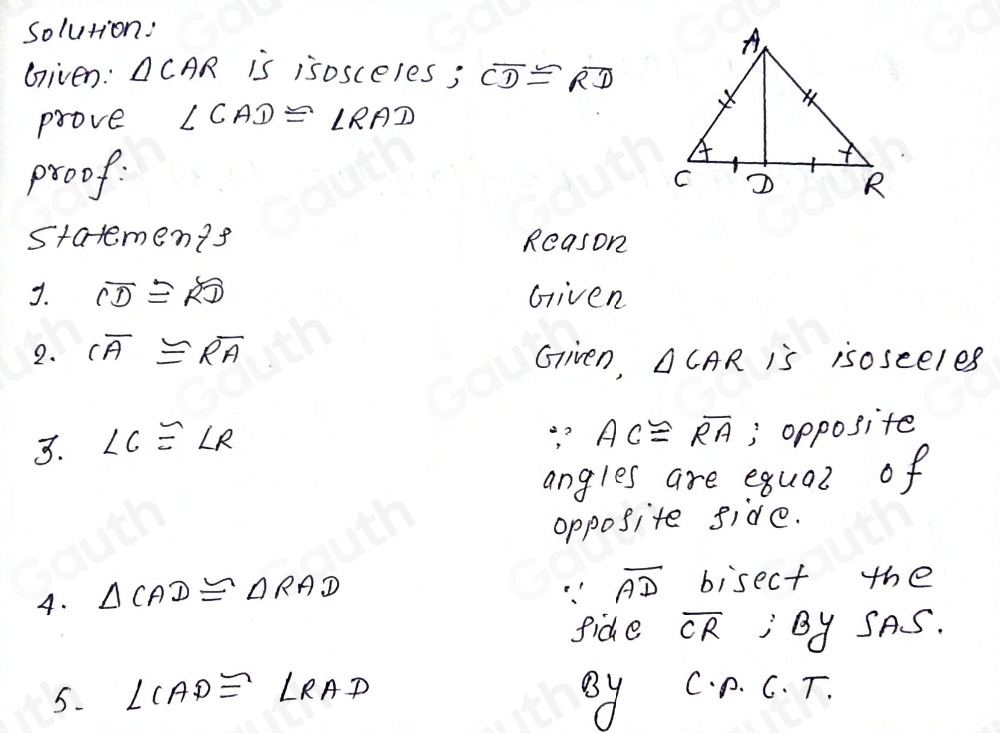 Solution:
Given: ΔCAR is isosceles; C̅D̅ ≅ R̅D̅
prove ∠CAD ≅ ∠RAD
proof:
A
C D R
Statements Reason
1. C̅D̅ ≅ R̅D̅ Given
2. C̅A̅ ≅ R̅A̅ Given, ΔCAR is isosceles
3. ∠C ≅ ∠R ∵ AC ≅ R̅A̅; opposite
angles are equal of
opposite side.
4. ΔCAD ≅ ΔRAD ∵ A̅D̅ bisect the
side C̅R̅; By SAS.
5. ∠CAD ≅ ∠RAD By C.P.C.T.
Gauth